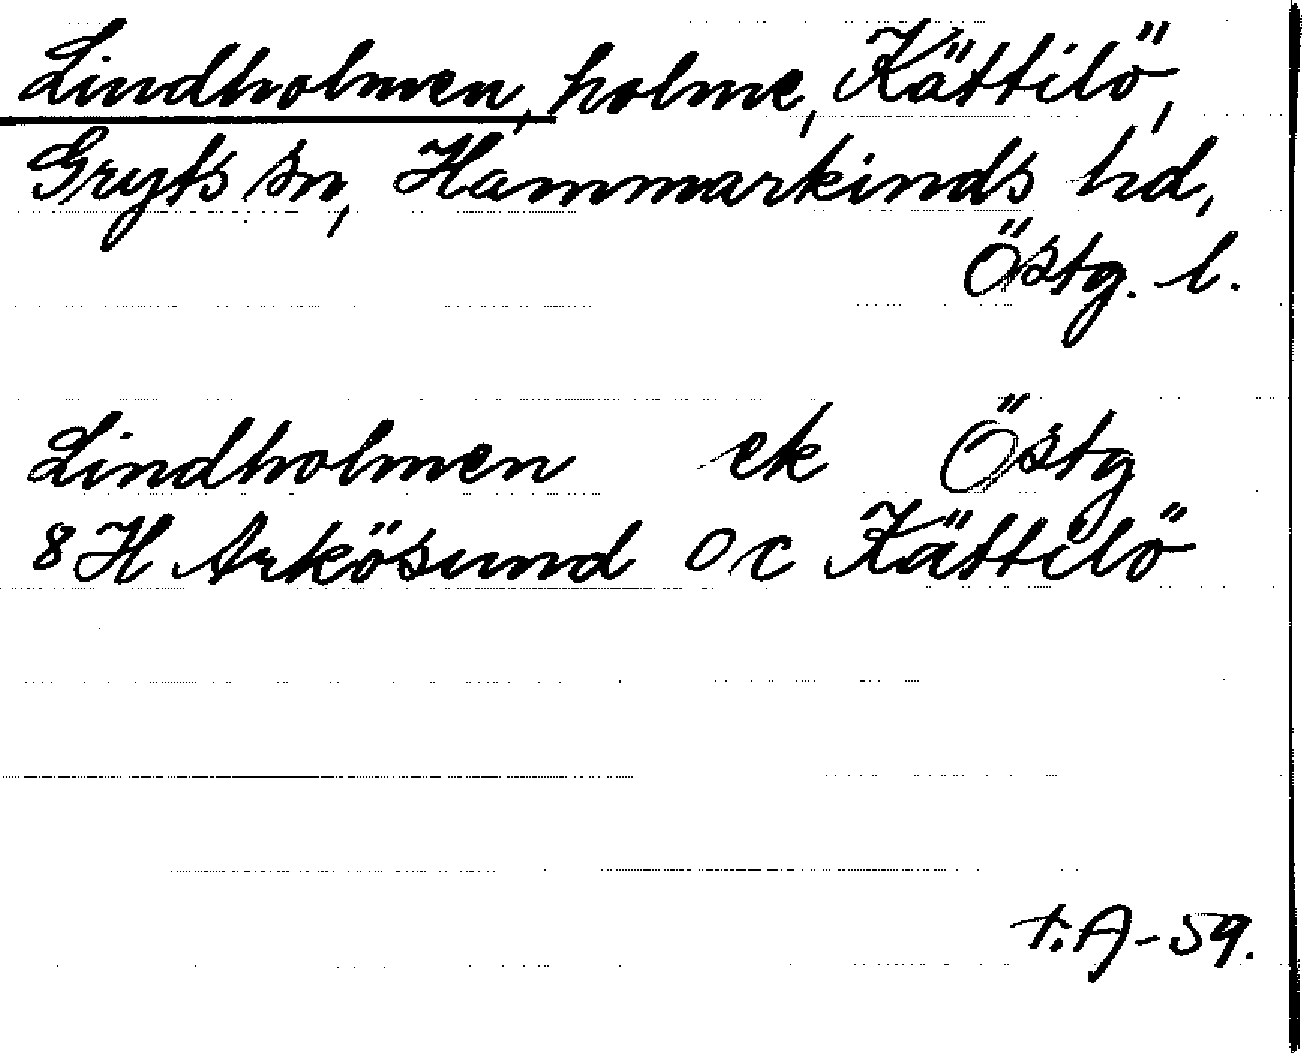 Lindholmen, holme, Kättilö,
Gryts sn, Hammarkinds hd,
Östg. l.
Lindholmen ek Östg
8H Arkösund oc Kättilö
t.A-59.